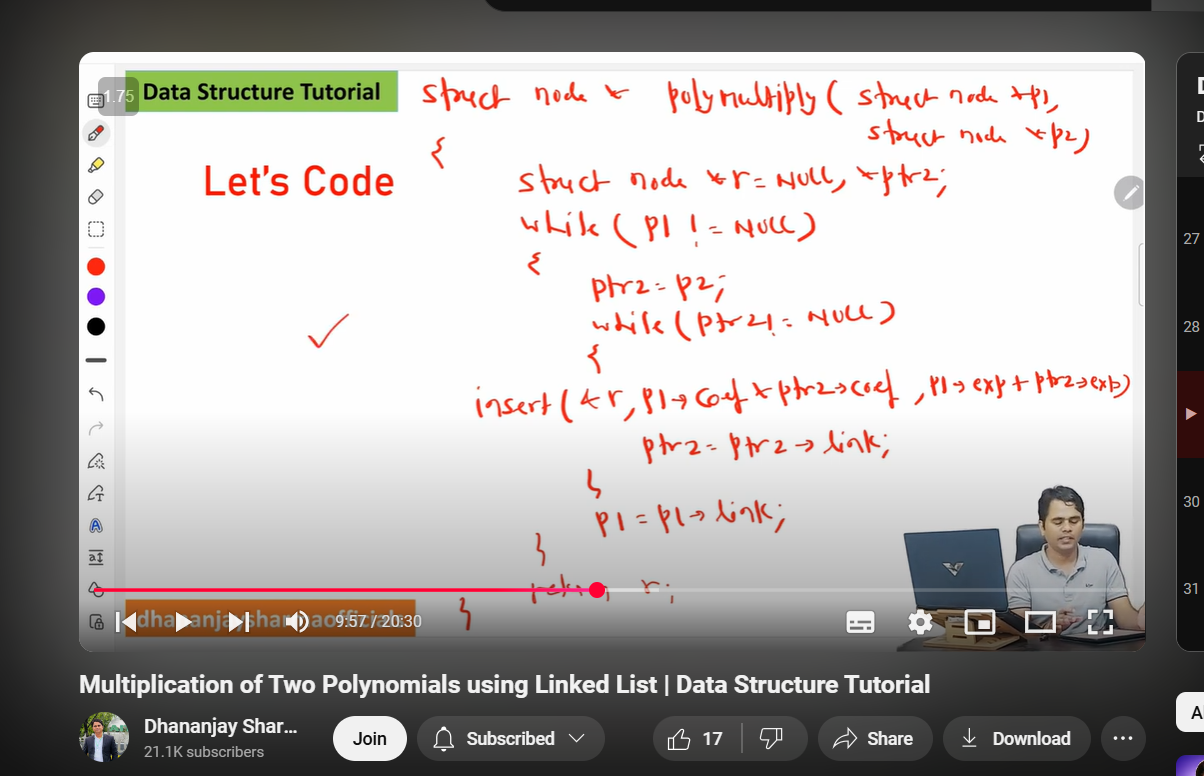 1.75
Data Structure Tutorial
Let's Code
struct node * polymultiply( struct node *p1,
struct node *p2)
{
struct node *r = NULL, *ptr2;
while ( p1 != NULL )
{
ptr2 = p2;
while ( ptr2 != NULL )
{
insert ( &r, p1→coef * ptr2→coef , p1→exp + ptr2→exp)
ptr2 = ptr2 → link;
}
p1 = p1→ link;
}
return r;
}
9:57 / 20:30
27
28
30
31
Multiplication of Two Polynomials using Linked List | Data Structure Tutorial
Dhananjay Shar...
21.1K subscribers
Join
Subscribed
17
Share
Download